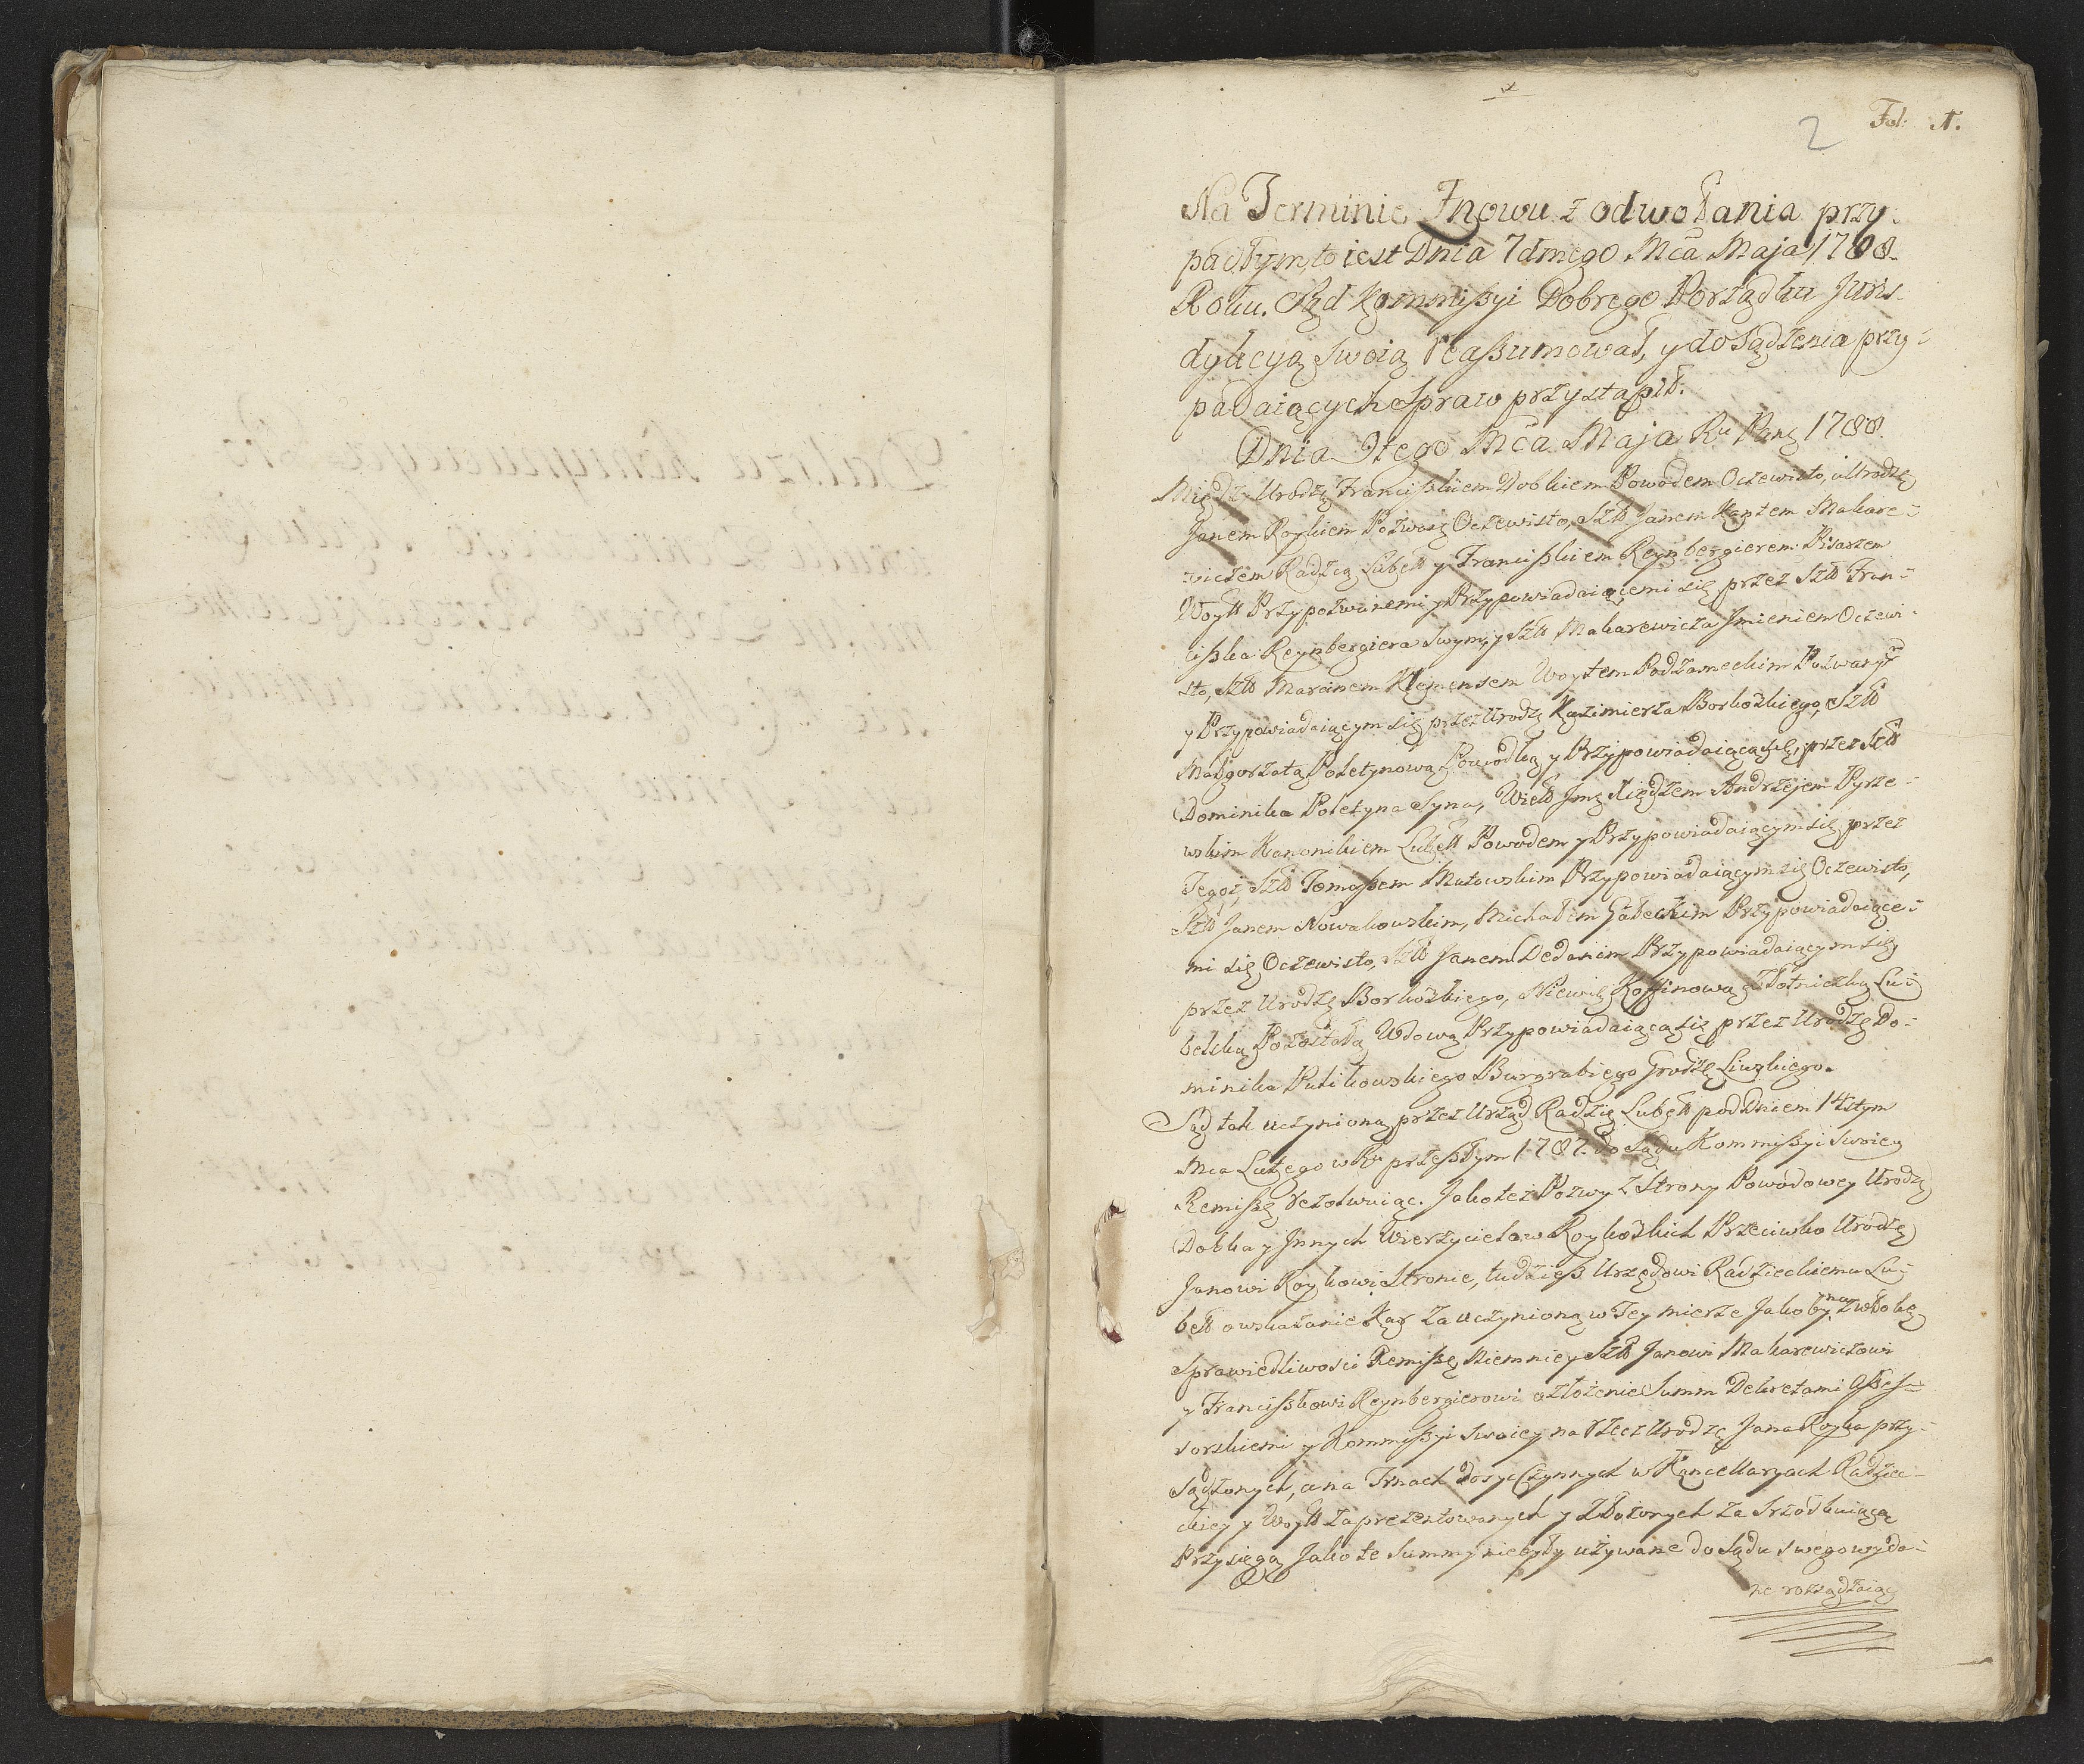 Fol: 1.
2
Na Terminie Znowu z odwołania przy-
padłym, to iest Dnia 7dmego Mca Maja 1788.
Roku. Sąd Kommissyi Dobrego Porządku Juris-
dykcyą swoią reassumował, y do sądzenia przy-
padaiących Spraw przystąpił.
Dnia 9tego Mca Maja Ru Pang 1788.
Między Urodz Franciszkiem Dobkiem Powodem Oczewisto, a Urodz
Janem Roykiem Pozwanę Oczewisto, Szł Janem Kantem Makare-
wiczem Radzcą Lubel y Franciszkiem Reynbergierem Pisarzem
Woytt Przypozwanemi y Przypowiadaiącemi się przez Szł Fran-
ciszka Reynbergiera swym, y Szł Makarewicza Jmieniem Oczewi-
sto, Szł Marcinem Klemensem Woytem Podzameckim Pozwanym
y Przypowiadaiącym się przez Urodz Kazimierza Borkowskiego, Szł
Małgorzatą Poletynową Powodką y Przypowiadaiącą się, przez Szł
Dominika Poletyna Syna, Wiel Jmę Xiędzem Andrzejem Pyrze-
wskim Kanonikiem Lubel Powodem y Przypowiadaiącym się przez
Tegoż, Szł Tomaszem Mutowskim Przypowiadaiącym się Oczewisto,
Szł Janem Nowakowskim, Michałem Gałeckim Przypowiadaiące-
mi się Oczewisto, Szł Janem Dedanim Przypowiadaiącym się
przez Urodz Borkowskiego, Niewię Koffinową Złotniczką Lu-
belską Pozostałą Wdową Przypowiadaiącą się przez Urodz Do-
minika Putikowskiego Burgrabiego Grodz Liwskiego.
Sąd tak uczynioną przez Urząd Radzie Lubel pod Dniem 14stym
Mca Lutego w Ru przeszłym 1787. do Sądu Kommissyi swoiey
Remissę rezolwuiąc. Jako też Pozwy z Strony Powodowey Urodz
Dobka y Jnnych Wierzycielow Roykowskich Przeciwko Urodz
Janowi Roykowi Stronie, tudziesz Urzędowi Radzieckiemu Lu-
bel o wskazanie Kar za uczynioną w Tey mierze Jakoby na zwłokę
Sprawiedliwosci Remissę Niemniey Szł Janowi Makarewiczowi
y Franciszkowi Reynbergierowi o złożenie Summ Dekretami Asses-
sorskiemi y Kommissyi swoiey na rzecz Urodz Jana Royka przy-
sądzonych, a na Trnach Dosyć Czynnych w Kancellaryach Radziec-
kiey y Woytt zaprezentowanych y złożonych za Srzodkuiącą
Przysięgą Jako te Summy nie były używane do Sądu swego wyda-
ne rozsądzaiąc